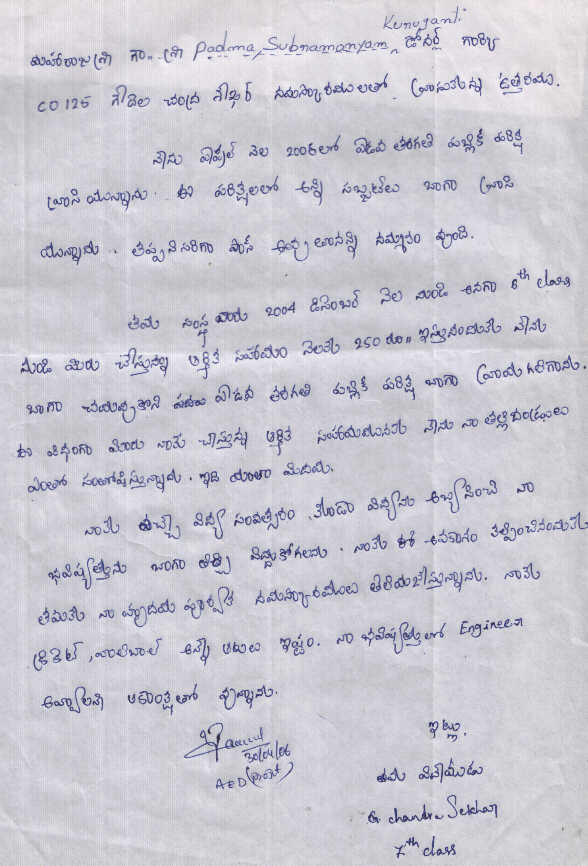 Kunuganti
మహారాజశ్రీ గా.. శ్రీ Padma Subramanyam డోనర్ గారికి
CO 125 గీడెల చంద్ర శేఖర్ నమస్కారములతో వ్రాసుకున్న ఉత్తరము.
నేను ఏప్రిల్ నెల 2006లో ఏడవ తరగతి పబ్లిక్ పరిక్ష
వ్రాసి యున్నాను. ఈ పరిక్షలలో అన్ని సబ్జెక్టులు బాగా వ్రాసి
యున్నాను. తప్పనిసరిగా పాస్ అవ్వుతానన్న నమ్మకం వుంది.
తమ సంస్థ వారు 2004 డిసెంబర్ నెల నుండి అనగా 6th class
నుండి మీరు చేస్తున్న ఆర్థిక సహాయం నెలకు 250 రూ॥ ఇస్తునందుకు నేను
బాగా చదువుకొని ఏడవ తరగతి పబ్లిక్ పరిక్ష బాగా వ్రాయగలిగాను.
ఈ విధంగా మీరు నాకు చేస్తున్న ఆర్థిక సహాయమునకు నేను నా తల్లిదండ్రులు
ఎంతో సంతోషిస్తున్నాము. ఇది యంతా మీదయ.
నాకు వచ్చే విద్యా సంవత్సరం కూడా విద్యను అభ్యసించి నా
భవిష్యత్తును బాగా తీర్చి దిద్దుకోగలను. నాకు ఈ అవకాశం కల్పించినందుకు
తమకు నా హృదయ పూర్వక నమస్కారములు తెలియచేస్తున్నాను. నాకు
క్రికెట్, వాలిబాల్ అన్నా ఆటలు ఇష్టం. నా భవిష్యత్తులో Engineer
అవ్వాలని ఆకాంక్షతో వున్నాను.
30/04/06
AED (Proj)
ఇట్లు,
తమ విధేయుడు
G chandra Sekhar
7th class